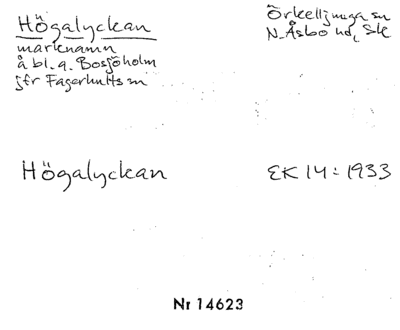 Högalyckan
Örkelljunga sn
marknamn
N. Åsbo hd, Sk
å bl. a. Bosjöholm
jfr Fagerhults sn
Högalyckan
EK 14: 1933
Nr 14623